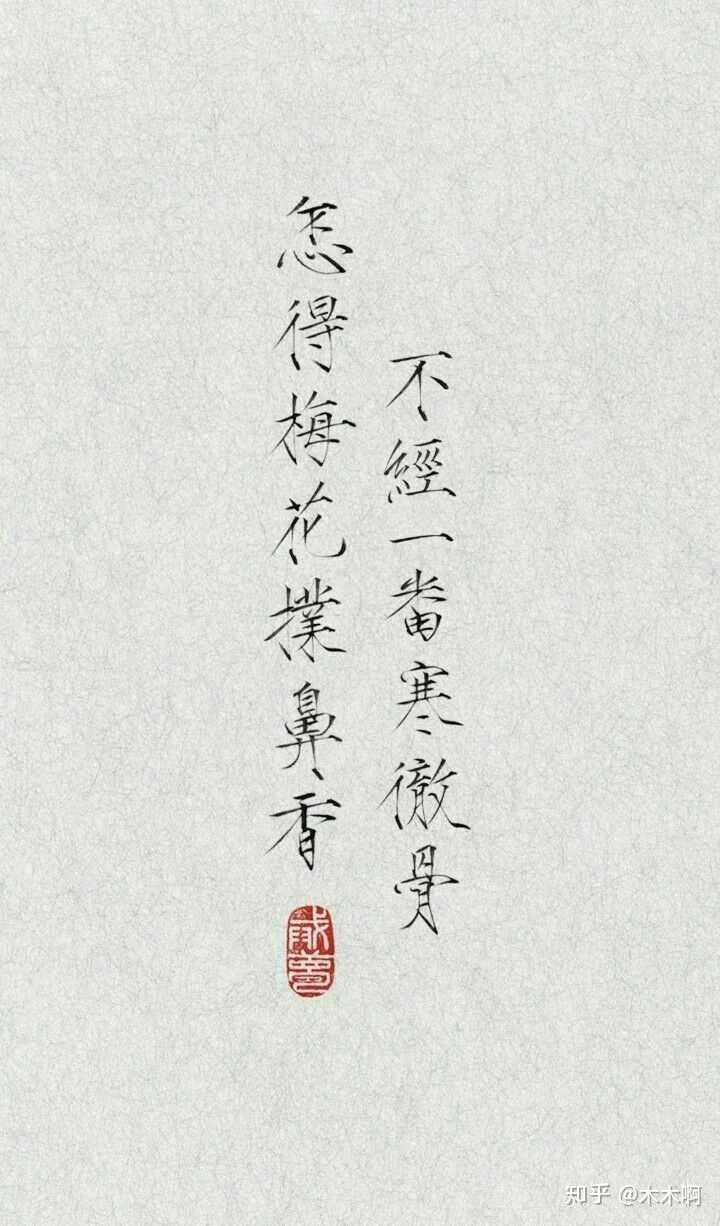 不經一番寒徹骨
怎得梅花撲鼻香
知乎 @木木啊